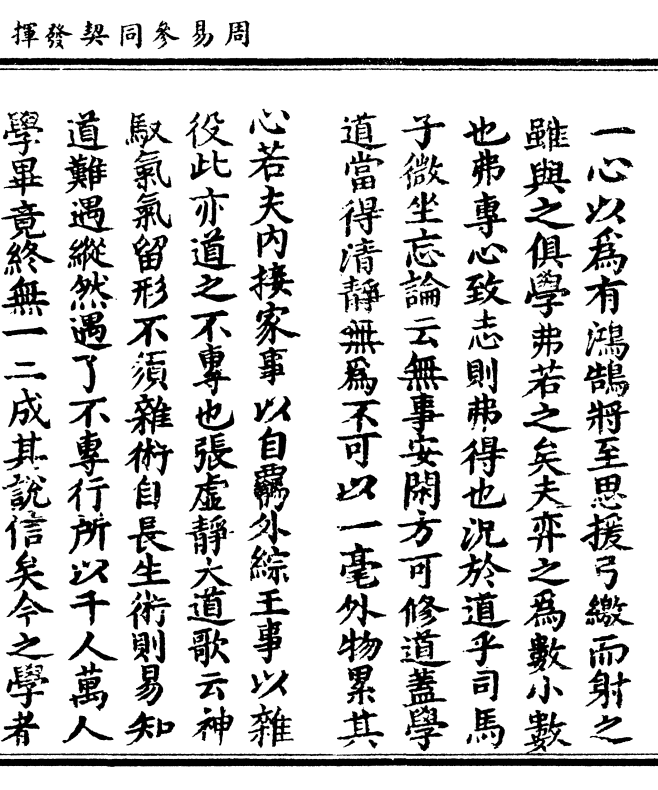 周易參同契發揮
一心以爲有鴻鵠將至思援弓繳而射之
雖與之俱學弗若之矣夫弈之爲數小數
也弗專心致志則弗得也況於道乎司馬
子微坐忘論云無事安閑方可修道蓋學
道當得清靜無爲不可以一毫外物累其
心若夫内接家事以自羈外綜王事以雜
役此亦道之不專也張虛靜大道歌云神
馭氣氣留形不須雜術自長生術則易知
道難遇縱然遇了不專行所以千人萬人
學畢竟終無一二成其說信矣今之學者